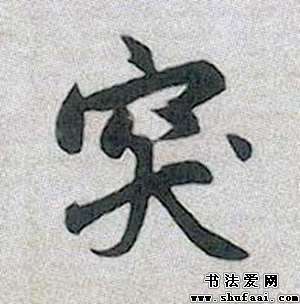 突
书法爱网
www.shufaai.com